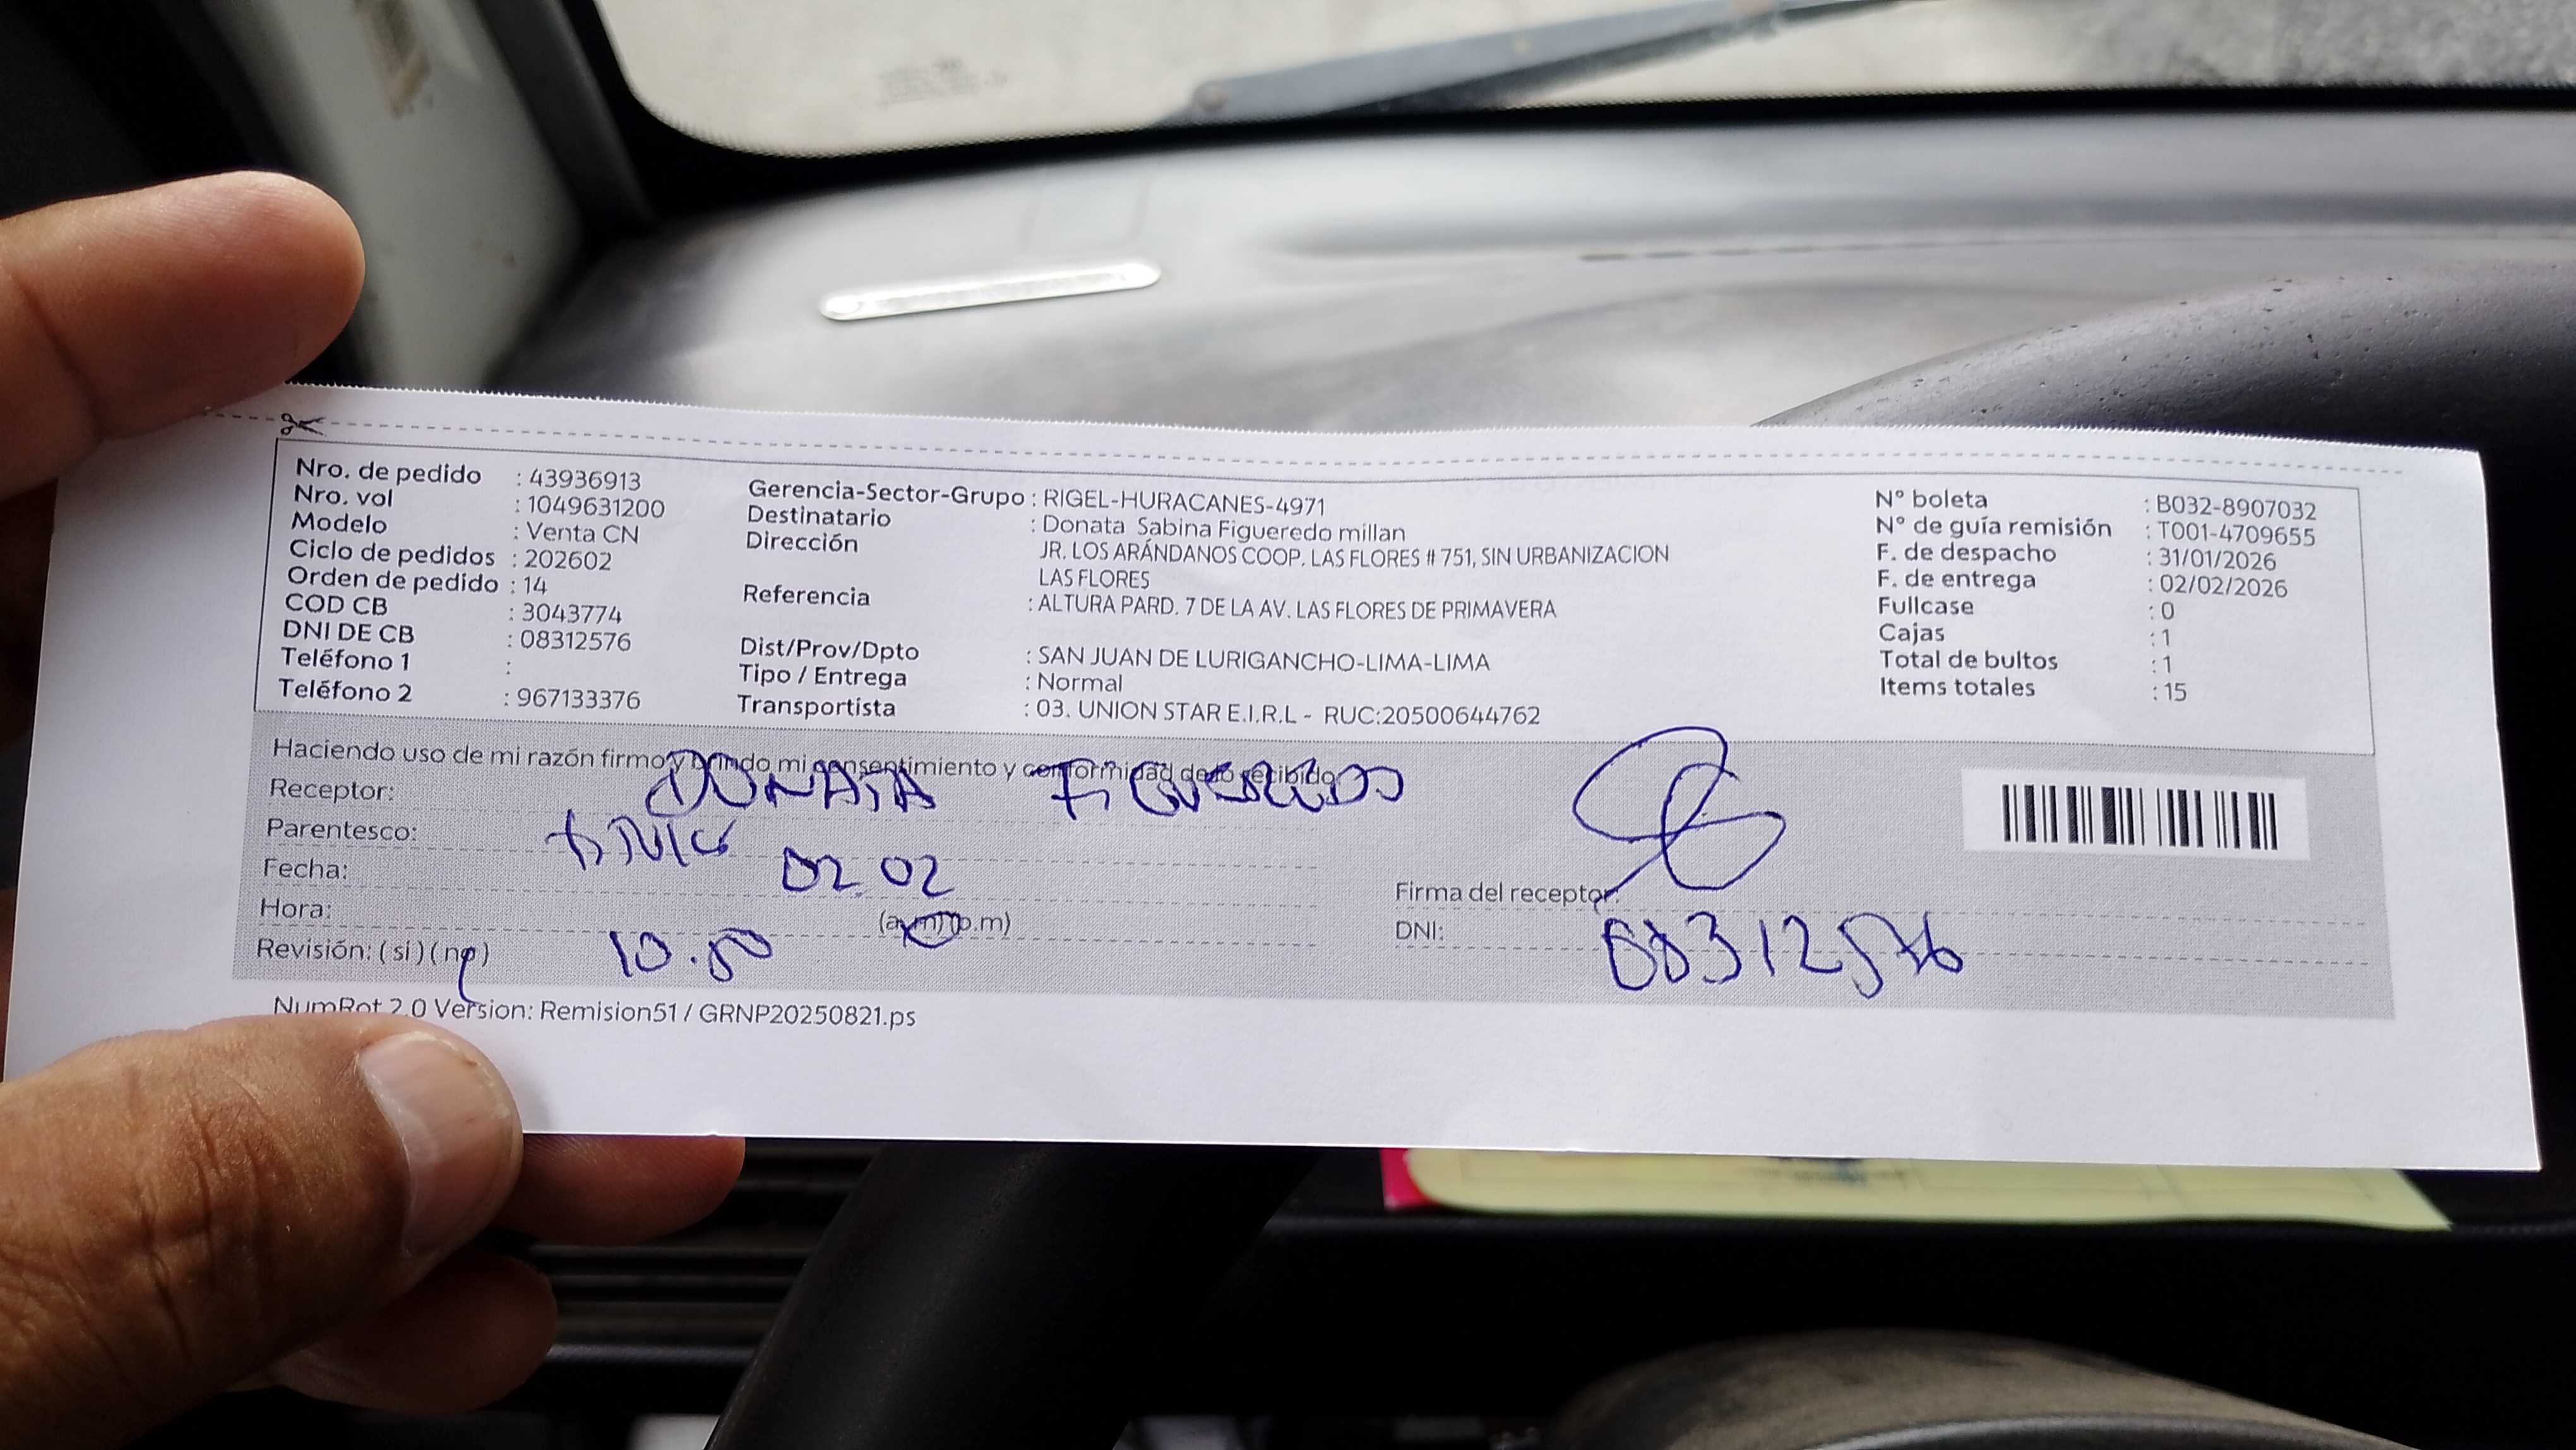 Nro. de pedido : 43936913
Nro. vol : 1049631200
Modelo : Venta CN
Ciclo de pedidos : 202602
Orden de pedido : 14
COD CB : 3043774
DNI DE CB : 08312576
Teléfono 1 :
Teléfono 2 : 967133376
Gerencia-Sector-Grupo : RIGEL-HURACANES-4971
Destinatario : Donata Sabina Figueredo millan
Dirección JR. LOS ARÁNDANOS COOP. LAS FLORES # 751, SIN URBANIZACION
LAS FLORES
Referencia : ALTURA PARD. 7 DE LA AV. LAS FLORES DE PRIMAVERA
Dist/Prov/Dpto : SAN JUAN DE LURIGANCHO-LIMA-LIMA
Tipo / Entrega : Normal
Transportista : 03. UNION STAR E.I.R.L - RUC:20500644762
N° boleta : B032-8907032
N° de guía remisión : T001-4709655
F. de despacho : 31/01/2026
F. de entrega : 02/02/2026
Fullcase : 0
Cajas : 1
Total de bultos : 1
Items totales : 15
Haciendo uso de mi razón firmo y brindo mi consentimiento y conformidad de lo recibido
Receptor: DONATA FIGUEREDO
Parentesco:
Fecha: 02 02
Hora: (a.m) (p.m)
Revisión: ( si ) ( no ) 10.50
Firma del receptor:
DNI: 08312576
NumRot 2.0 Version: Remision51 / GRNP20250821.ps